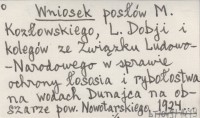 Wniosek posłów M.
Kozłowskiego, L. Dobji i
kolegów ze Związku Ludowo-
-Narodowego w sprawie
ochrony łososia i rybołostwa
na wodach Dunajca na ob-
szarze pow. Nowotarskiego, 1924